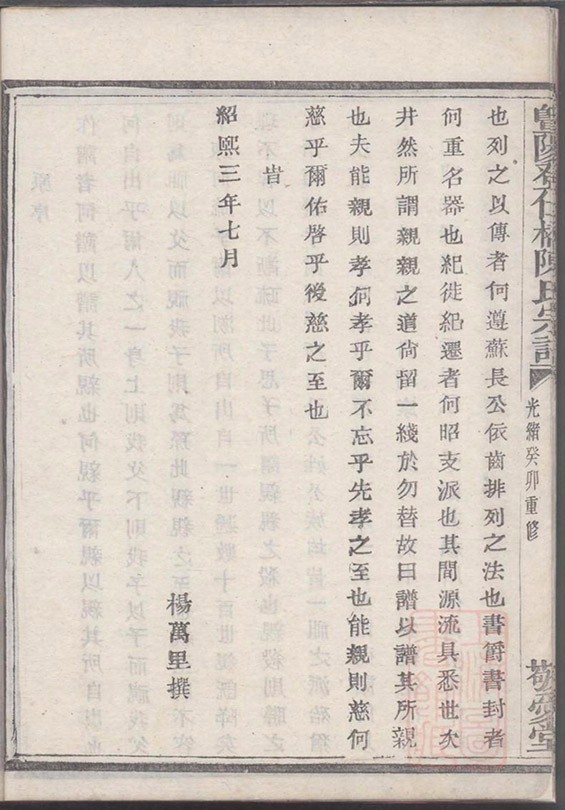 暨陽孝仁橋陳氏宗譜
光緒癸卯重修
敬愛堂
也列之以傳者何遵蘇長公依齒排列之法也書爵書封者
何重名器也紀徙紀遷者何昭支派也其間源流具悉世次
井然所謂親親之道尙留一綫於勿替故曰譜以譜其所親
也夫能親則孝何孝乎爾不忘乎先孝之至也能親則慈何
慈乎爾佑啓乎後慈之至也
旹
紹熙三年七月
楊萬里撰